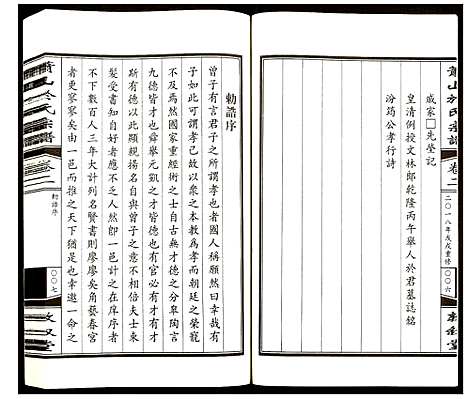 蕭山於氏宗譜
卷二
二〇一八年戊戌重修
〇〇六
戚家□先塋記
皇清例授文林郎乾隆丙午舉人於君墓誌銘
汾筠公孝行詩
勅誥序
曾子有言君子之所謂孝者也國人稱願然曰幸哉有
子如此可謂孝已故以衆之本教爲孝而朝廷之榮寵
不及焉然國家重經術之士自古無才德之分皋陶言
九德皆才也舜舉元凱之士皆德也有官必有才有才
必有德以此顯親揚名自與曾子之孝不相倍矣士束
髮受書知自好者不乏人然即一邑計之在庠序者
不下數百人三年大計列名賢書則廖廖矣角藝春宮
者更寥寥矣由一邑而推之天下猶是也幸邀一命之
蕭山於氏宗譜
卷二
勅誥序
〇〇七
敦叙堂